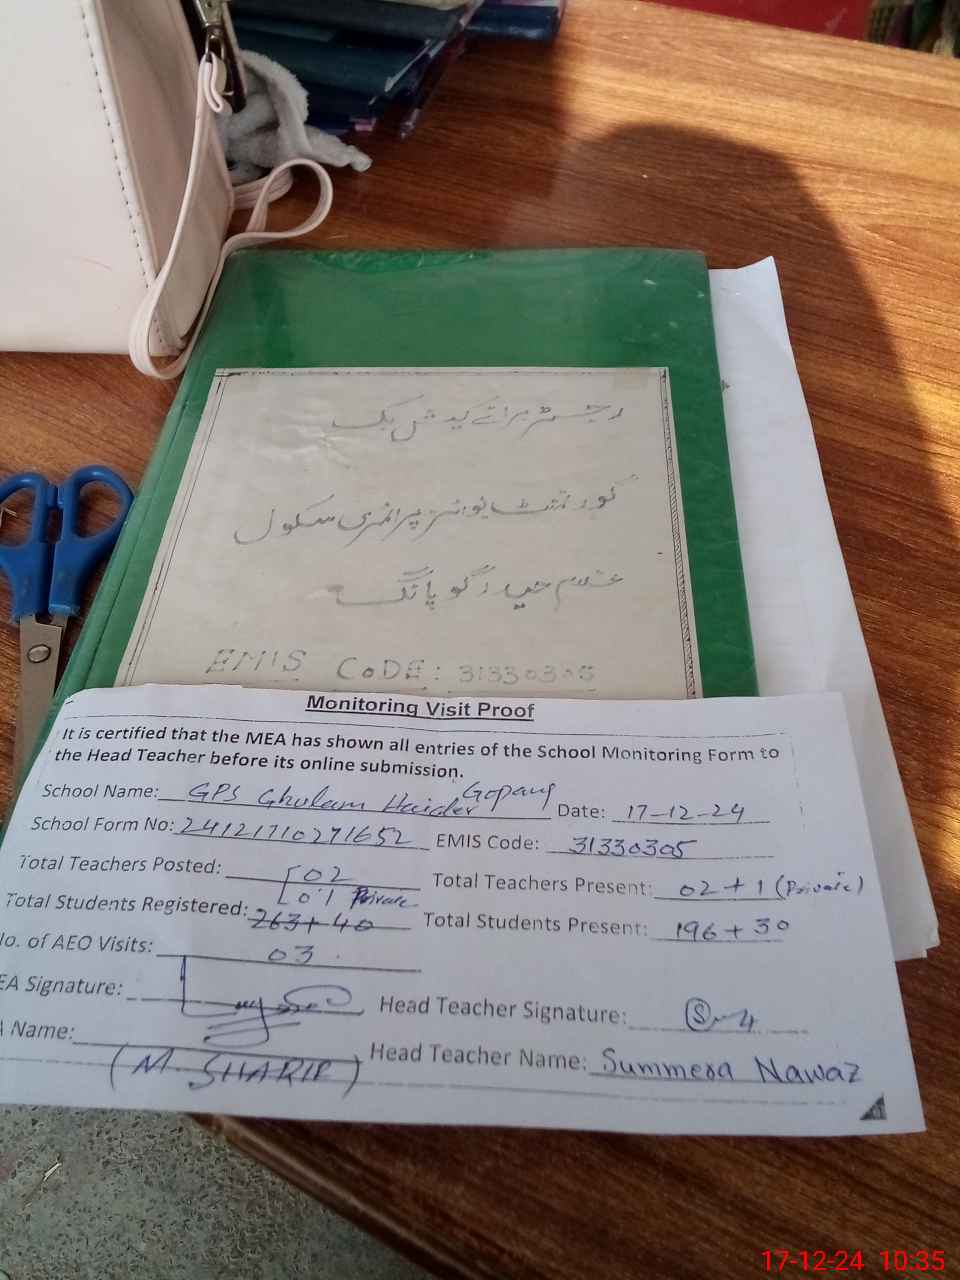 رجسٹر برائے کیش بک
گورنمنٹ بوائز پرائمری سکول
غلام حیدر گوپانگ
EMIS CODE: 31330305
Monitoring Visit Proof
It is certified that the MEA has shown all entries of the School Monitoring Form to
the Head Teacher before its online submission.
School Name: GPS Ghulam Haider Gopang Date: 17-12-24
School Form No: 24121710271652 EMIS Code: 31330305
Total Teachers Posted: 02 Total Teachers Present: 02+1 (Private)
01 Private
Total Students Registered: 263+40 Total Students Present: 196+30
No. of AEO Visits: 03
EA Signature: Head Teacher Signature:
Name: (M. SHARIF) Head Teacher Name: Summera Nawaz
17-12-24 10:35